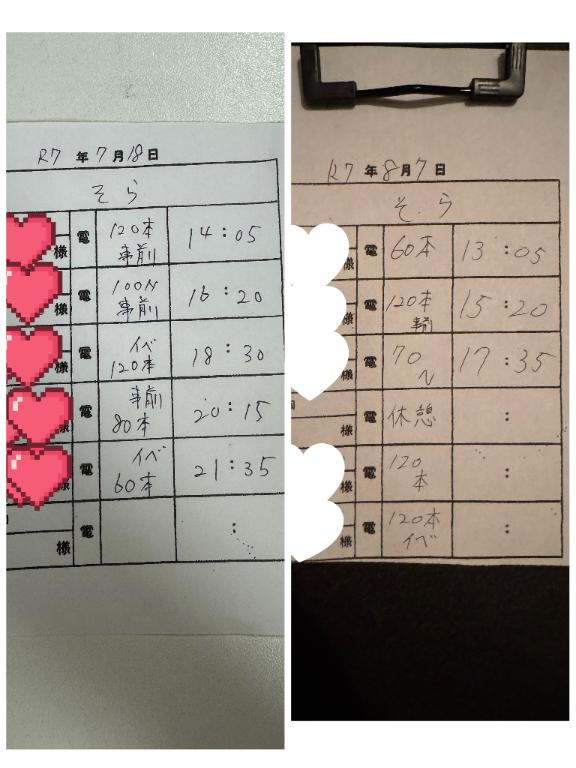 R7 年 7 月 18 日
そら
様 電 120本 事前 14:05
様 電 100N 事前 16:20
様 電 イベ 120本 18:30
様 電 事前 80本 20:15
様 電 イベ 60本 21:35
様 電 :
R7 年 8 月 7 日
そら
様 電 60本 13:05
様 電 120本 事前 15:20
様 電 70 N 17:35
様 電 休憩 :
様 電 120 本 :
様 電 120本 イベ :